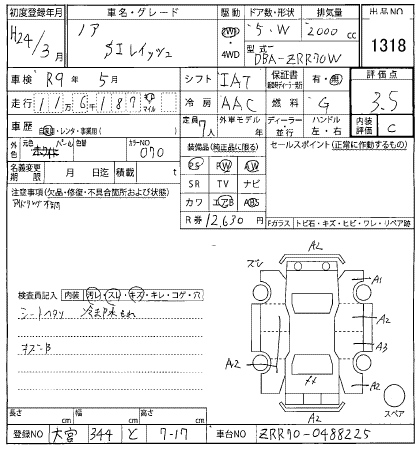 初度登録年月 車名・グレード 駆動 ドア数・形状 排気量 出品NO
H24/3月 ノア SIレイッシュ 2WD・4WD 5・W 2000cc 1318
型式 DBA-ZRR70W
車検 R9年5月 シフト IAT 保証書 有・無 評価点 3.5
走行 116187 キロ マイル 冷房 AAC 燃料 G
車歴 自家・レンタ・事業用( ) 定員 7人 外車モデル 年 ディーラー・並行 ハンドル 左・右 内装評価 C
外色 元色 パール 色替 カラーNO 070
装備品(純正品に限る) セールスポイント(正常に作動するもの)
名義変更期限 月 日 積載 t
PS PW AW
SR TV ナビ
カワ エアB ABS
R券 12,630円
注意事項(欠品・修復・不具合箇所および状態)
Fガラス トビ石・キズ・ヒビ・ワレ・リペア跡
検査員記入 内装 汚レ・スレ・キズ・キレ・コゲ・穴
A2
A1
A2
A3
A2
A2
A2
スペア
長さ cm 幅 cm 高さ cm
登録NO 大宮 344 と 7-17 車台NO ZRR70-0488225